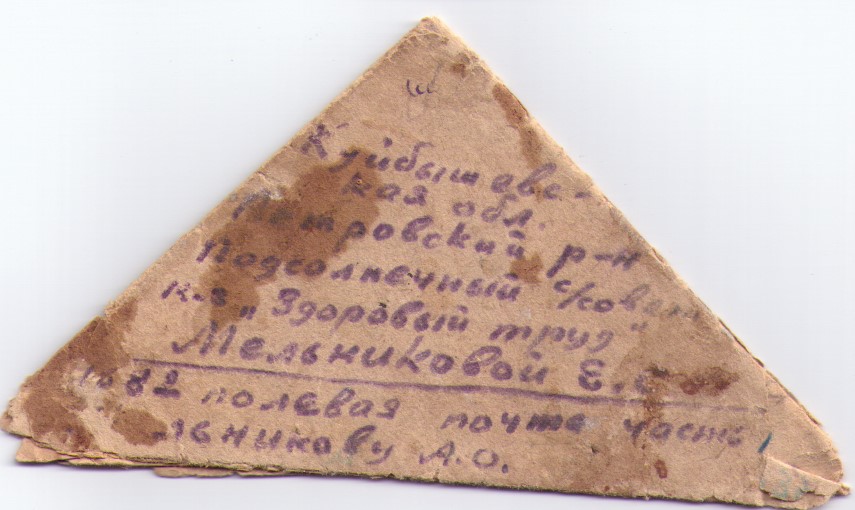 Куйбышевс-
кая обл.
Петровский р-н
Подсолнечный с/совет
к-з „Здоровый труд"
Мельниковой Е.
полевая почта часть
льникову А.О.